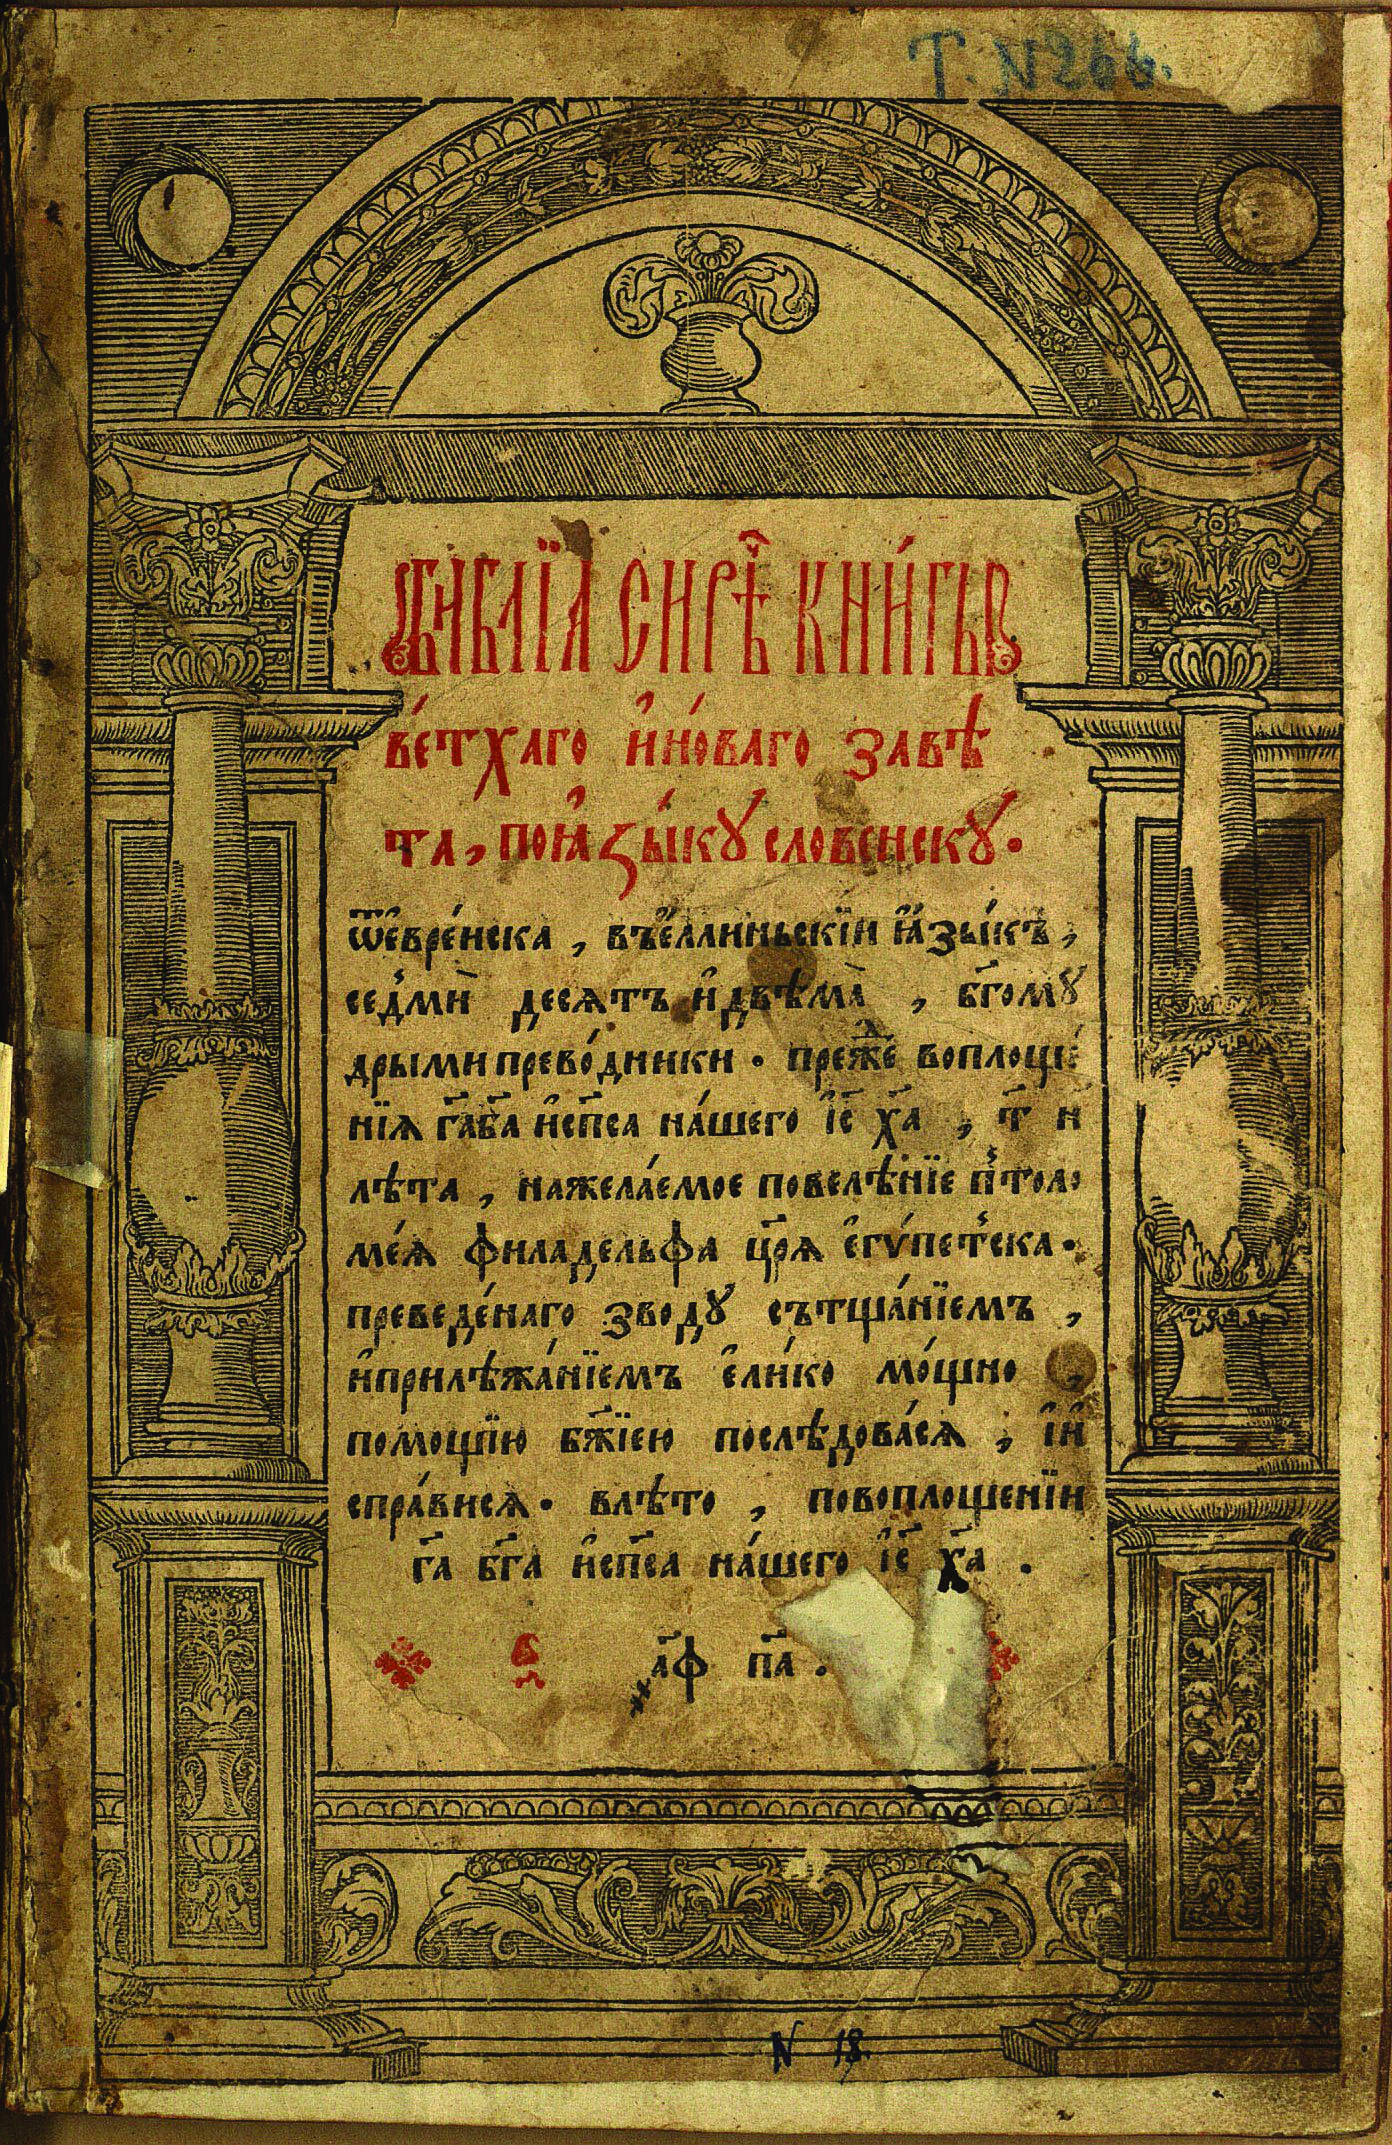 Т. И 266.
БИБЛЇѦ СИРѢ҃Ч КНИ́ГЫ
ве́тхаго и҆но́ваго завѣ
та, поꙗ҆зы́кꙋ словенскꙋ.
ѿе҆вре́нска, въе҆ллиньскїи ꙗ҆зы́къ,
се́дмꙿ дѣсѧтъ и҆двѣма̀, бг҃омꙋ
дрыми прево́дники. преж́де воплоще́
нїѧ габ҃а и҆сп҃са на́шего і҆с҃ х҃а, т҃ и
лѣта, нажела́емое повелѣ́нїе п́тол
ме́ѧ филадельфа цр҃ѧ е҆гѵ́петска.
преведе́наго зводꙋ сътща́нїемъ,
и҆прилѣжа́нїемъ е҆ли́ко мо́щно
помощїю бж҃їею послѣдова́сѧ, і҆и҆
спра́висѧ. влѣ́то, повоплощенїи
г҃а бг҃а и҆сп҃са на́шего і҆с҃ х҃а.
҂а҃ф п҃а.
N 18.